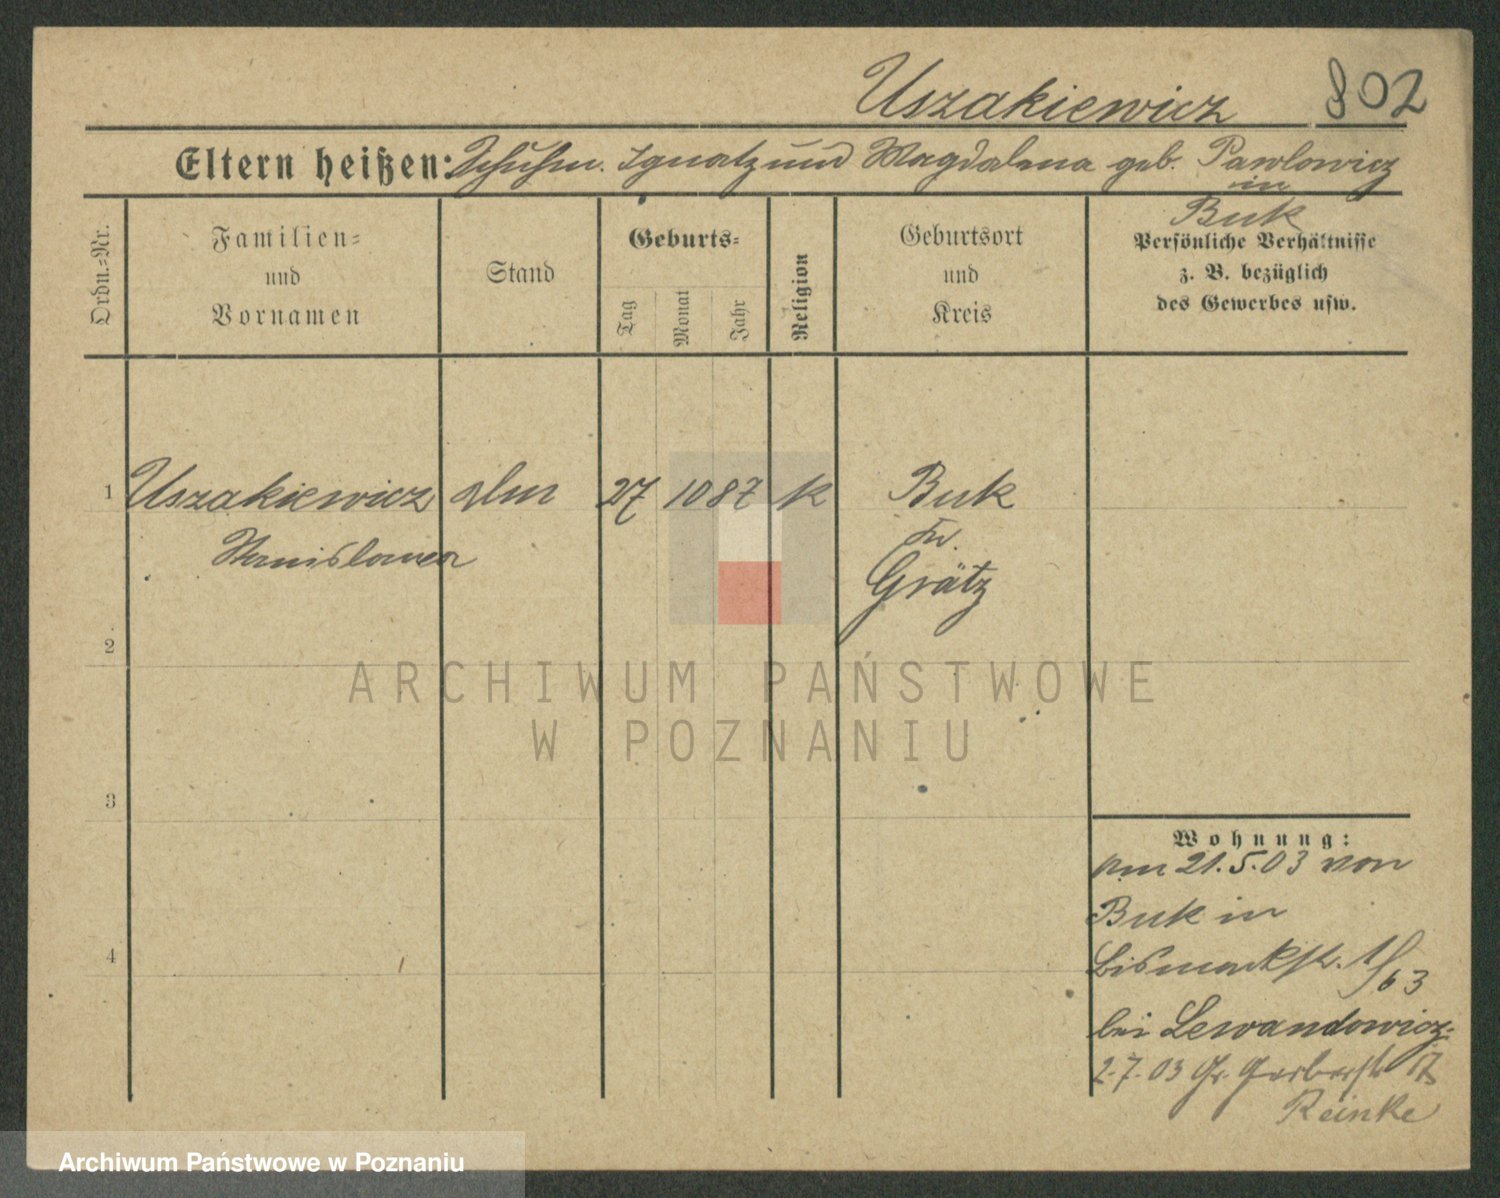 Uszakiewicz 802
Eltern heißen: Schuhm. Ignatz und Magdalena geb. Pawlowicz
in
Buk
Ordn.-Nr.
Familien-
und
Vornamen
Stand
Geburts-
Tag
Monat
Jahr
Religion
Geburtsort
und
Kreis
Persönliche Verhältnisse
z. B. bezüglich
des Gewerbes usw.
1 Uszakiewicz 27 10 87 k Buk
Stanislawa
Kr.
Grätz
2
3
4
Wohnung:
am 21.5.03 von
Buk in
Bismarckstr. 1/63
bei Lewandowicz.
2.7.03 Gr. Gerberstr
Reinke
ARCHIWUM PAŃSTWOWE
W POZNANIU
Archiwum Państwowe w Poznaniu